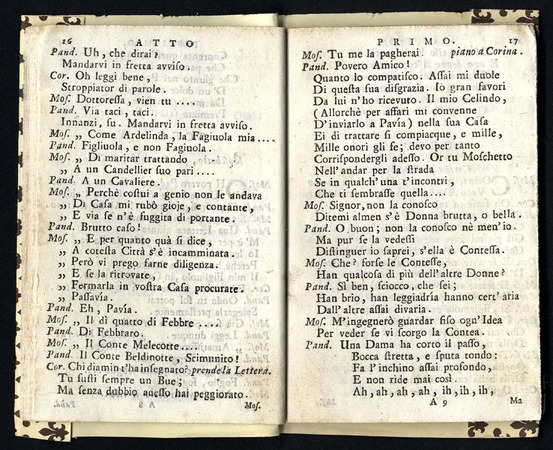 16 ATTO
Pand. Uh, che dirai?
Mandarvi in fretta avviso.
Cor. Oh leggi bene,
Stroppiator di parole.
Mos. Dottoressa, vien tu ....
Pand. Via taci, taci.
Innanzi, su. Mandarvi in fretta avviso.
Mos. „ Come Ardelinda, la Fagiuola mia ....
Pand. Figliuola, e non Fagiuola.
Mos. „ Di maritar trattando,
„ A un Candellier suo pari ....
Pand. A un Cavaliere.
Mos. „ Perchè costui a genio non le andava
„ Di Casa mi rubò gioje, e contante,
„ E via se n'è fuggita di portante.
Pand. Brutto caso!
Mos. „ E per quanto quà si dice,
„ A cotesta Città s'è incamminata.
„ Però vi prego farne diligenza.
„ E se la ritrovate,
„ Fermarla in vostra Casa procurate.
„ Passavia.
Pand. Eh, Pavia.
Mos. „ Il dì quatto di Febbre ....
Pand. Di Febbraro.
Mos. „ Il Conte Melecotte ....
Pand. Il Conte Beldinotte, Scimunito!
Cor. Chi diamin t'ha insegnato? prende la Lettera.
Tu fusti sempre un Bue;
Ma senza dubbio adesso hai peggiorato.
Mos.
PRIMO. 17
Mos. Tu me la pagherai. piano a Corina.
Pand. Povero Amico!
Quanto lo compatisco. Assai mi duole
Di questa sua disgrazia. Io gran favori
Da lui n'ho ricevuto. Il mio Celindo,
(Allorchè per affari mi convenne
D'inviarlo a Pavia) nella sua Casa
Ei di trattare si compiacque, e mille,
Mille onori gli fe; devo per tanto
Corrispondergli adesso. Or tu Moschetto
Nell'andar per la strada
Se in qualch'una t'incontri,
Che ti sembrasse quella ....
Mos. Signor, non la conosco
Ditemi almen s'è Donna brutta, o bella.
Pand. O buon; non la conosco nè men'io.
Ma pur se la vedessi
Distinguer io saprei, s'ella è Contessa.
Mos. Che? forse le Contesse,
Han qualcosa di più dell'altre Donne?
Pand. Sì ben, sciocco, che sei;
Han brio, han leggiadria hanno cert'aria
Dall'altre assai divaria.
Mos. M'ingegnerò guardar fiso ogn'Idea
Per veder se vi scorgo la Contea.
Pand. Una Dama ha corto il passo,
Bocca stretta, e sputa tondo:
Fa l'inchino assai profondo,
E non ride mai così.
Ah, ah, ah, ah, ih, ih, ih;
A 9 Ma